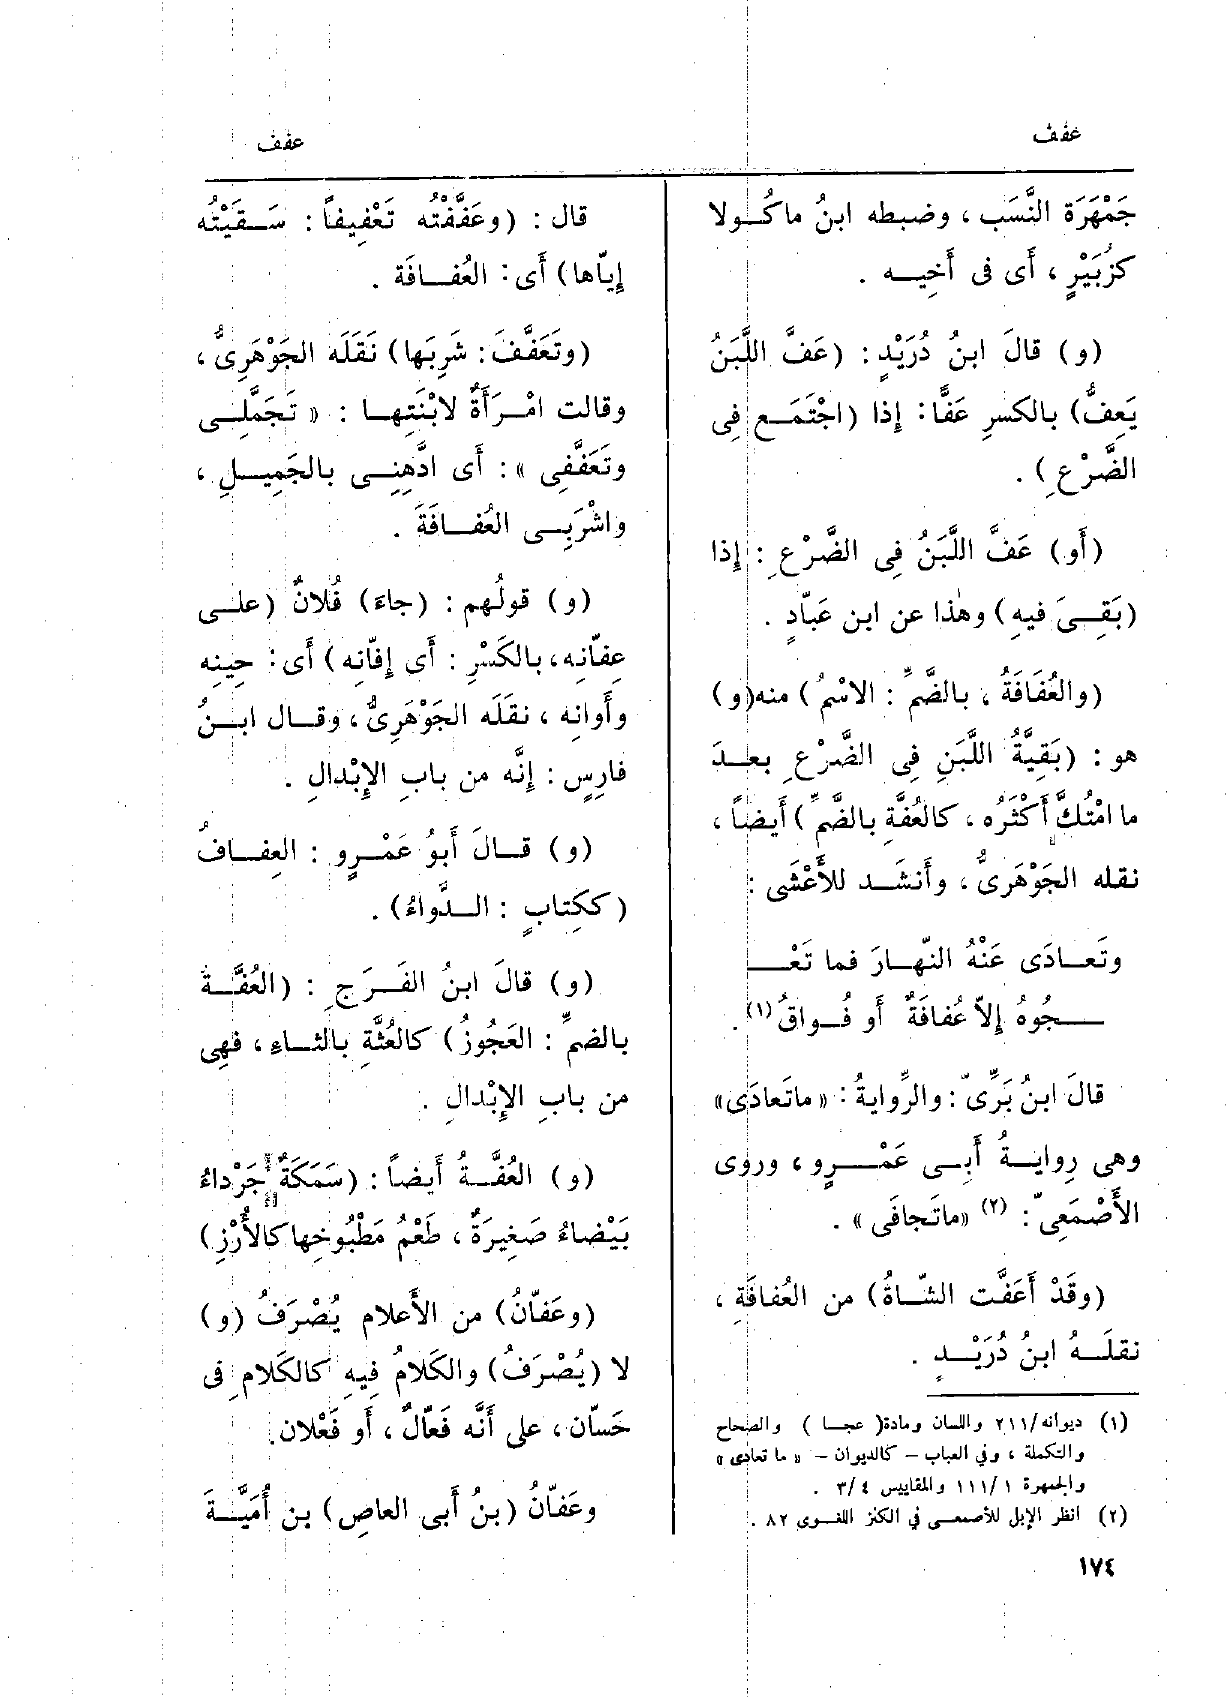 عفف
عفف
جَمْهَرَة النَّسَب ، وضبطه ابنُ ماكُولا
كزُبَيْرٍ ، أَى فى أَخِيه .
(و) قالَ ابنُ دُرَيْدٍ : (عَفَّ اللَّبَنُ
يَعِفُّ) بالكسرِ عَفًّا: إذا (اجْتَمَع فِى
الضَّرْعِ) .
(أَو) عَفَّ اللَّبَنُ فِى الضَّرْعِ : إذا
(بَقِىَ فيهِ) وهٰذا عن ابن عَبّادٍ .
(والعُفَافَةُ ، بالضَّمِّ : الاسْمُ) منه(و)
هو : (بَقِيَّةُ اللَّبَنِ فِى الضَّرْعِ بعدَ
ما امْتُكَّ أَكْثَرُه ، كالعُفَّةِ بالضَّمِّ) أَيضاً ،
نقله الجَوْهَرِىُّ ، وأَنشَد للأَعْشَى :
وتَعادَى عَنْهُ النَّهارَ فما تَعْـ
ـجُوهُ إلاّ عُفافَةٌ أَو فُواقُ(١) .
قالَ ابنُ بَرِّىّ : والرِّوايةُ : « ماتَعادَى»
وهى رِوايةُ أَبِى عَمْرٍو ، وروى
الأَصْمَعِىّ : (٢) «ماتَجافَى » .
(وقَدْ أَعَفَّت الشّاةُ) من العُفافَةِ ،
نقلَهُ ابنُ دُرَيْدٍ .
(١) ديوانه/٢١١ واللسان ومادة( عجا ) والصحاح
والتكملة ، وفي العباب – كالديوان – « ما تعادى »
والجمهرة ١١١/١ والمقاييس ٣/٤ .
(٢) انظر الإبل للأصمعى في الكنز اللغوى ٨٢ .
١٧٤
قال : (وعَفَّفْتُه تَعْفِيفاً : سَقَيْتُه
إيّاها) أَى: العُفافَة .
(وتَعَفَّفَ: شَرِبَها) نَقَلَه الجَوْهَرِىُّ ،
وقالت امْرَأَةٌ لابْنَتِها : « تَجَمَّلِى
وتَعَفَّفِى » : أَى ادَّهِنِى بالجَمِيلِ ،
واشْرَبِى العُفافَةَ .
(و) قولُهم : (جاءَ) فُلانٌ (على
عِفّانِه، بالكَسْرِ : أَى إفّانِه) أَى: حِينِه
وأَوانِه ، نقلَه الجَوْهَرِىُّ ، وقال ابنُ
فارِسٍ : إنَّه من بابِ الإِبْدالِ .
(و) قالَ أَبُو عَمْرٍو : العِفافُ
(ككِتابٍ : الدَّواءُ) .
(و) قالَ ابنُ الفَرَجِ : (العُفَّةُ
بالضمِّ : العَجُوزُ) كالعُثَّةِ بالثاءِ ، فهى
من بابِ الإِبْدالِ .
(و) العُفَّةُ أَيضاً : (سَمَكَةٌ جَرْداءُ
بَيْضاءُ صَغِيرَةٌ ، طَعْمُ مَطْبُوخِها كالأَرُزِ)
(وعَفّانُ) من الأَعلام يُصْرَفُ (و)
لا (يُصْرَفُ) والكَلامُ فِيهِ كالكَلامِ فى
حَسّان ، على أَنَّه فَعّالٌ ، أَو فَعْلان.
وعَفّانُ (بنُ أَبى العاصِ) بن أُمَيَّةَ